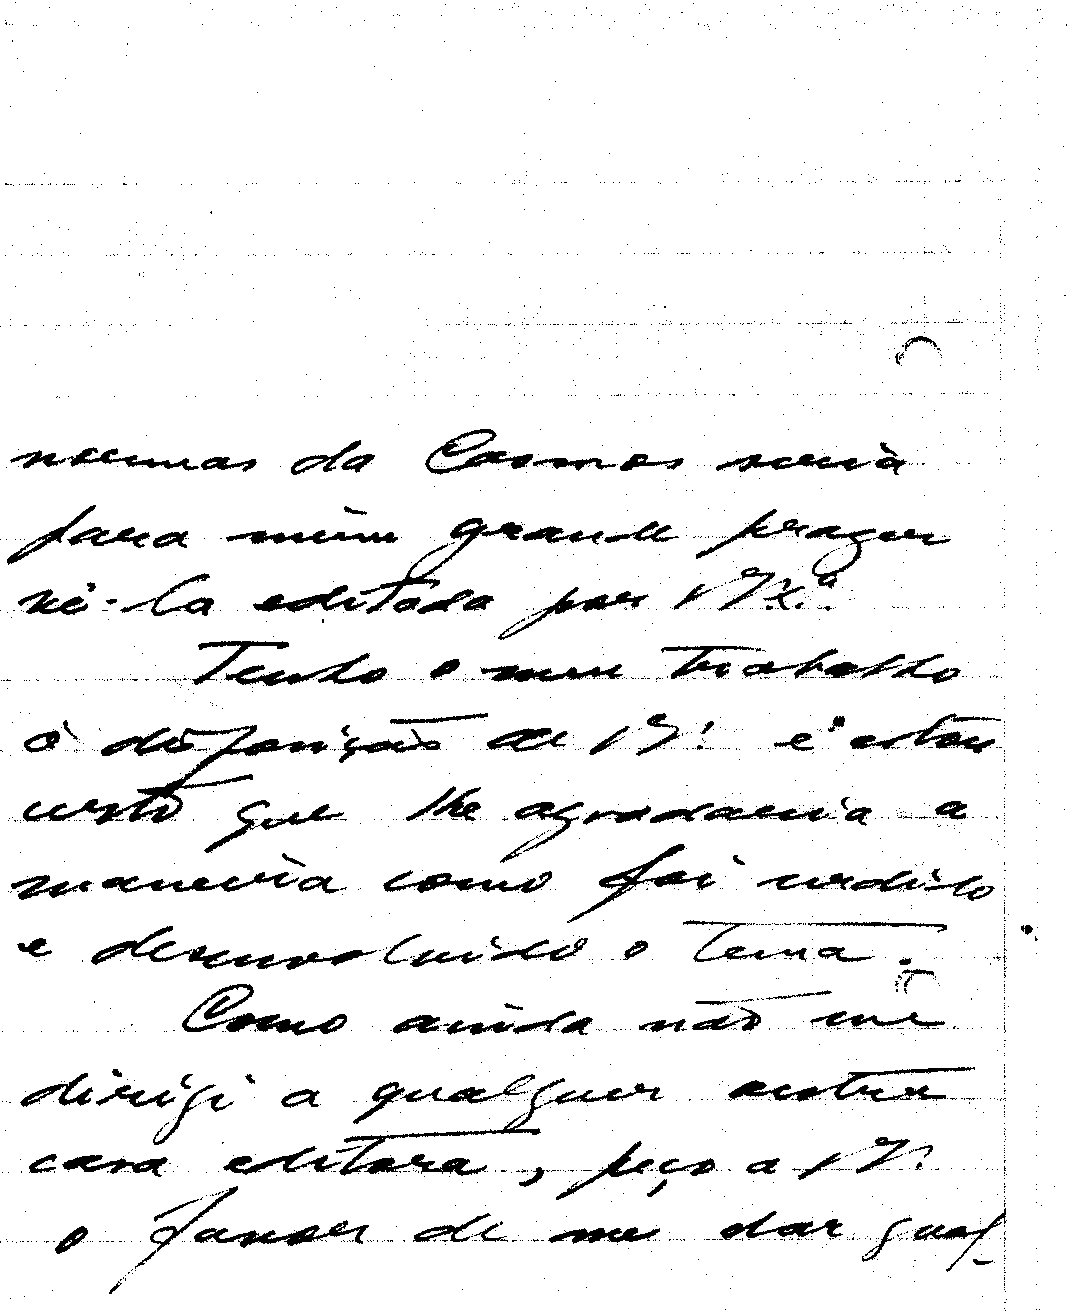 normas da Cosmos seria
para mim grande prazer
vê-la editada por V. Ex.ª
Tenho o meu trabalho
à disposição de V. e estou
certo que lhe agradaria a
maneira como foi urdido
e desenvolvido o tema.
Como ainda não me
dirigi a qualquer outra
casa editora, peço a V.
o favor de me dar qual-